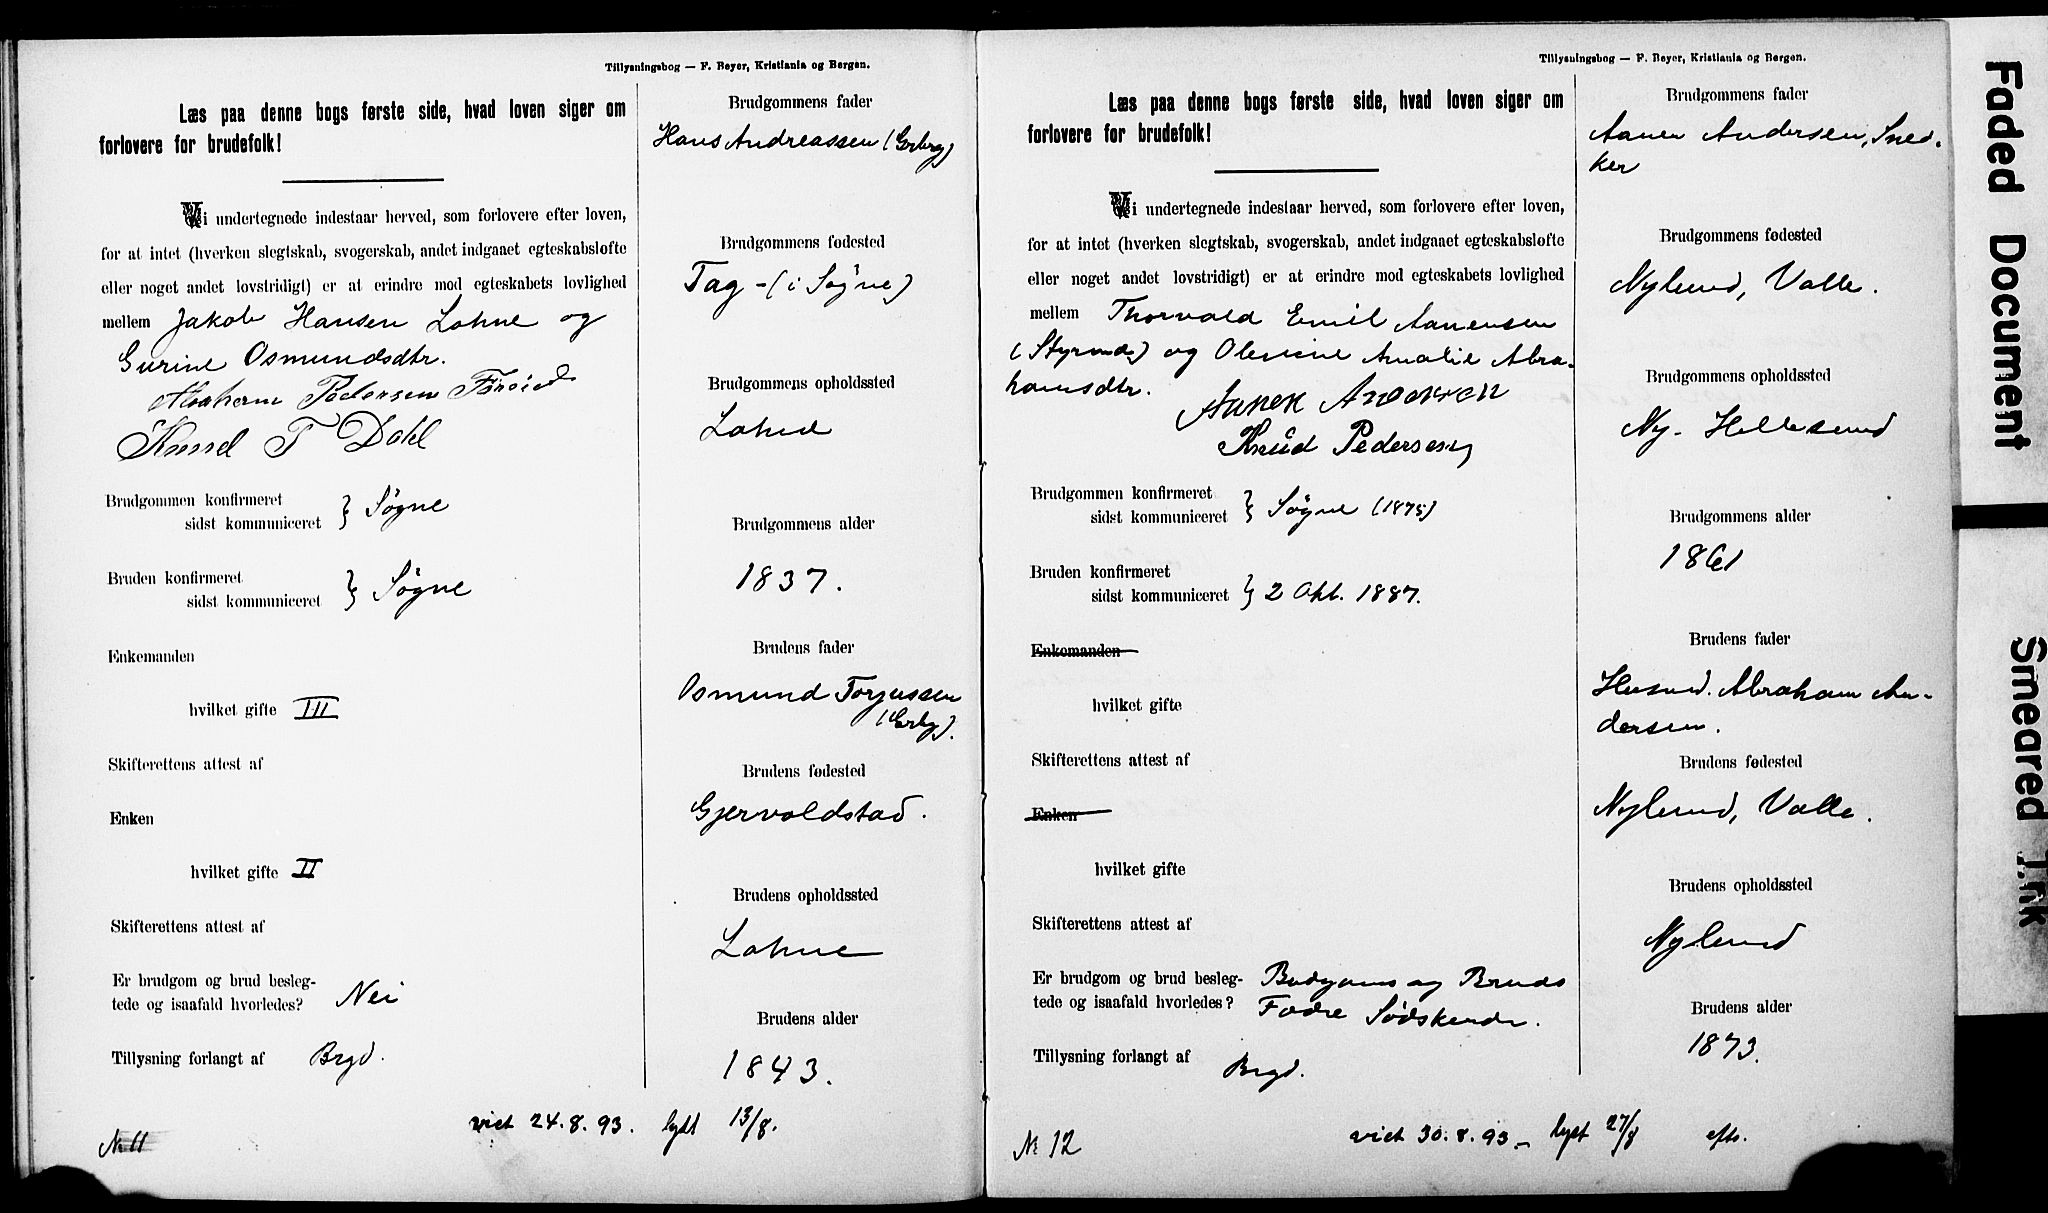 Tillysningsbog — F. Beyer, Kristiania og Bergen.
Læs paa denne bogs første side, hvad loven siger om
forlovere for brudefolk!
Vi undertegnede indestaar herved, som forlovere efter loven,
for at intet (hverken slegtskab, svogerskab, andet indgaaet egteskabsløfte
eller noget andet lovstridigt) er at erindre mod egteskabets lovlighed
mellem Jakob Hansen Lohne og
Gurine Osmundsdtr.
Abraham Pedersen
Knud T Dahl
Brudgommen konfirmeret
sidst kommuniceret } Søgne
Bruden konfirmeret
sidst kommuniceret } Søgne
Enkemanden
hvilket gifte III
Skifterettens attest af
Enken
hvilket gifte II
Skifterettens attest af
Er brudgom og brud besleg-
tede og isaafald hvorledes? Nei
Tillysning forlangt af Brgd.
Brudgommens fader
Hans Andreassen
Brudgommens fødested
Tag - (i Søgne)
Brudgommens opholdssted
Lohne
Brudgommens alder
1837.
Brudens fader
Osmund Torjussen
Brudens fødested
Gjervoldstad.
Brudens opholdssted
Lohne
Brudens alder
1843.
№ 11
viet 24.8.93. lyst 13/8.
Tillysningsbog — F. Beyer, Kristiania og Bergen.
Læs paa denne bogs første side, hvad loven siger om
forlovere for brudefolk!
Vi undertegnede indestaar herved, som forlovere efter loven,
for at intet (hverken slegtskab, svogerskab, andet indgaaet egteskabsløfte
eller noget andet lovstridigt) er at erindre mod egteskabets lovlighed
mellem Thorvald Emil Aanensen
(Styrmd.) og Olevine Amalie Abra-
hamsdtr.
Aanen Andersen
Knud Pedersen
Brudgommen konfirmeret
sidst kommuniceret } Søgne (1875)
Bruden konfirmeret
sidst kommuniceret } 2 Okt. 1887.
Enkemanden
hvilket gifte
Skifterettens attest af
Enken
hvilket gifte
Skifterettens attest af
Er brudgom og brud besleg-
tede og isaafald hvorledes? Brudgoms og Bruds
Fædre Sødskende.
Tillysning forlangt af Brgd.
Brudgommens fader
Aanen Andersen, Sned-
ker
Brudgommens fødested
Nylund, Valle.
Brudgommens opholdssted
Ny-Hellesund
Brudgommens alder
1861
Brudens fader
Husmd. Abraham An-
dersen.
Brudens fødested
Nylund, Valle.
Brudens opholdssted
Nylund
Brudens alder
1873.
№ 12
viet 30.8.93 - lyst 27/8 efts.
Faded Document
Smeared Ink